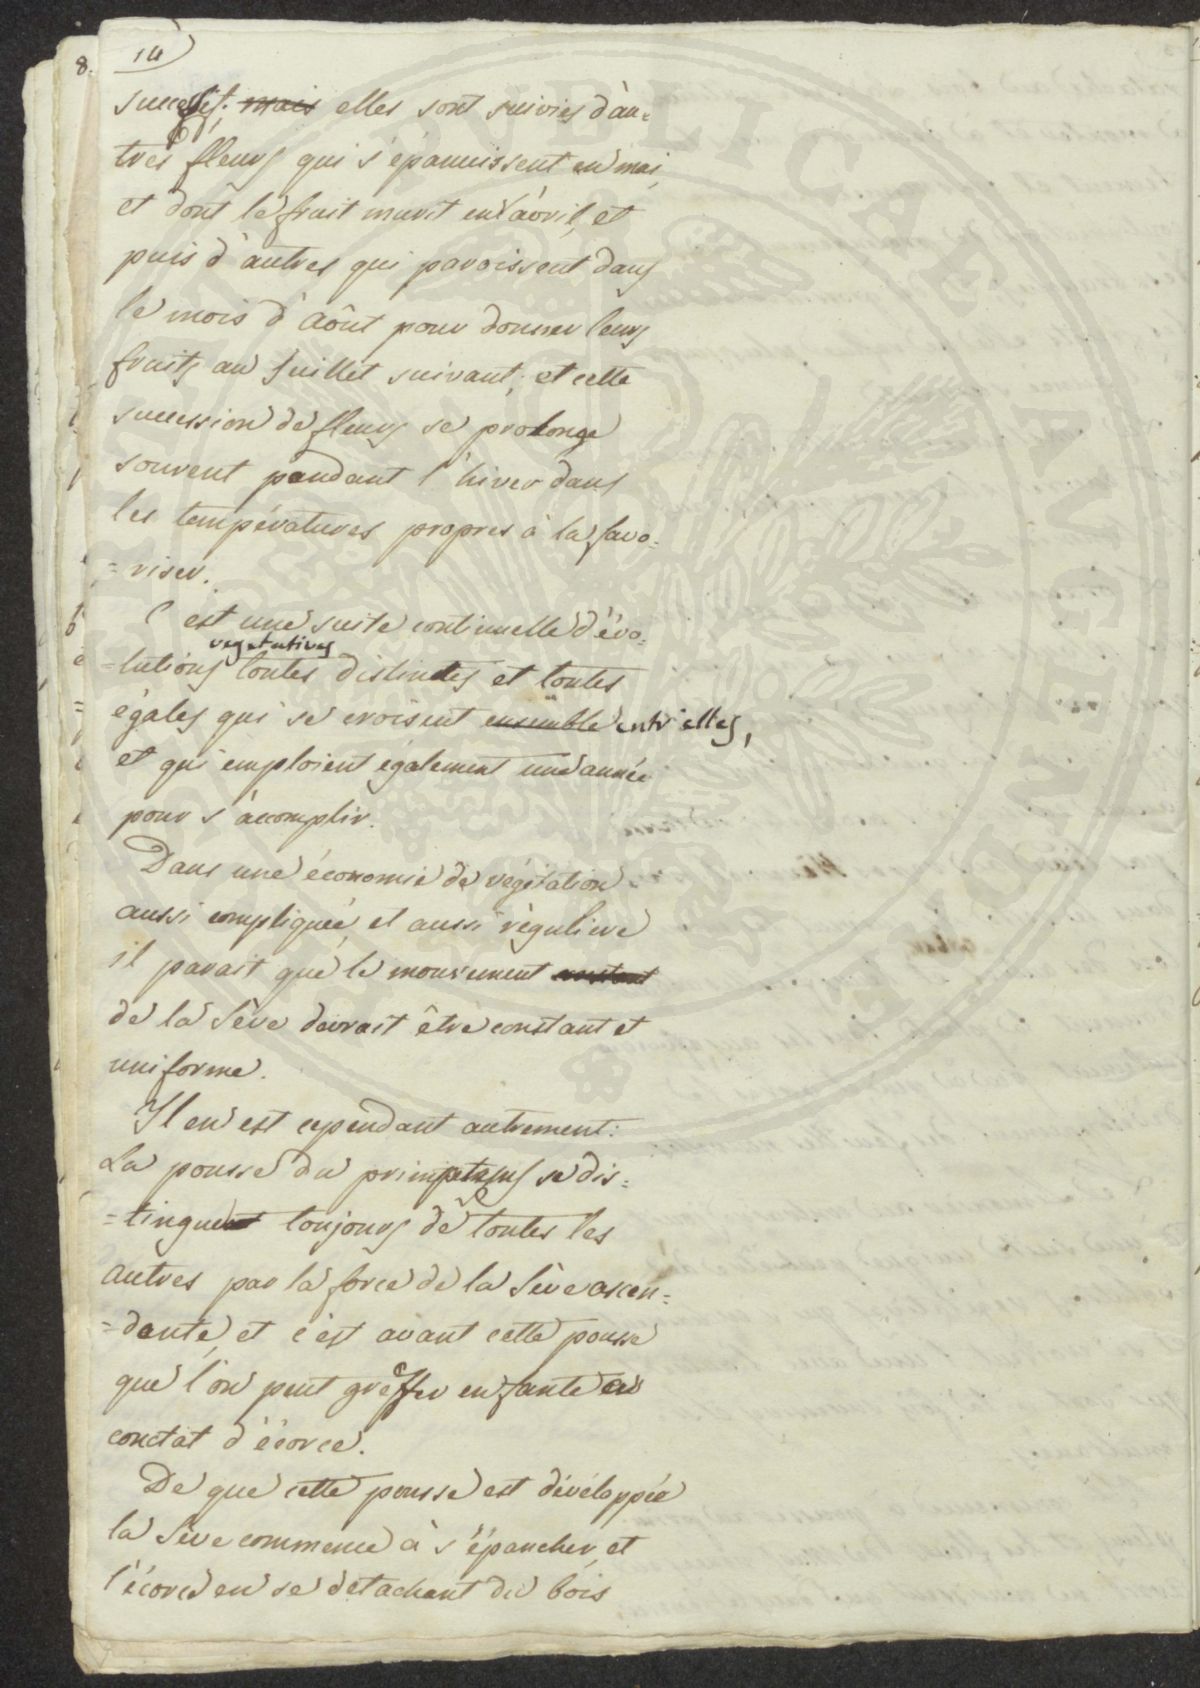 8. 14
successif; mais elles sont suivies d'au=
tres fleurs qui s'épanuissent en mai,
et dont le fruit murit en avril, et
puis d'autres qui paroissent dans
le mois d'Aôut pour donner leurs
fruits au Juillet suivant; et cette
succession de fleurs se prolonge
souvent pendant l'hiver dans
les températures propres à la favo=
=riser.
C'est une suite continuelle d'évo=
vegetatives
=lutions toutes distinctes et toutes
égales qui se croisent ensemble entr'elles,
et qui emploient également une année
pour s'accomplir.
Dans une économie de végétation
aussi compliquée, et aussi régulière
il parait que le mouvement constant
de la Sève devrait être constant et
uniforme.
Il en est cependant autrement:
La pousse du primptems se dis=
=tinguent toujours de toutes les
autres par la force de la Sève ascen=
=dante, et c'est avant cette pousse
que l'on peut greffer en fante ou
conctat d'écorce.
De que cette pousse est dévéloppée
la Sève commence à s'épancher, et
l'écorce en se détachant du bois
PUBLICA